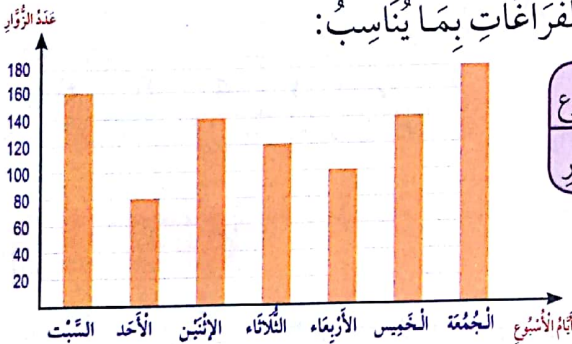 عَدَدُ الزُّوَّارِ
بِمَا يُنَاسِبُ:
180
160
140
120
100
80
60
40
20
السَّبْت الْأَحَد الْإِثْنَيْن الثُّلَاثَاء الْأَرْبِعَاء الْخَمِيس الْجُمُعَة أَيَّامُ الْأُسْبُوعِ